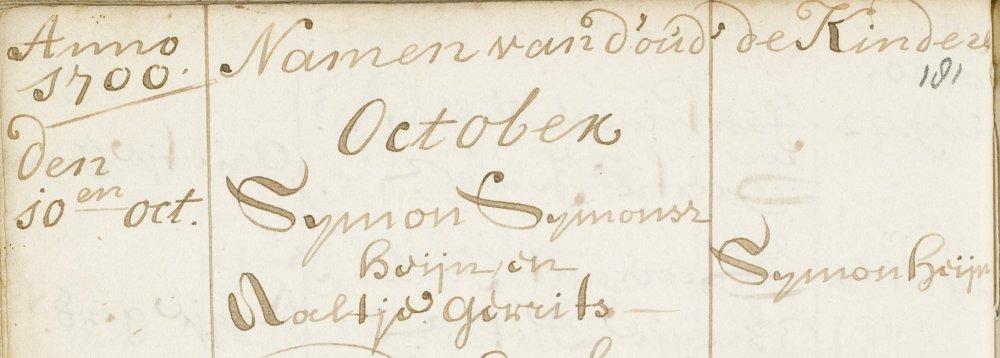 Anno
1700.
Namen van d'oud' de Kinder
181
October
den
10 en oct.
Symon Symonsz
heijn, en
Aaltje Gerrits
Symon heijn